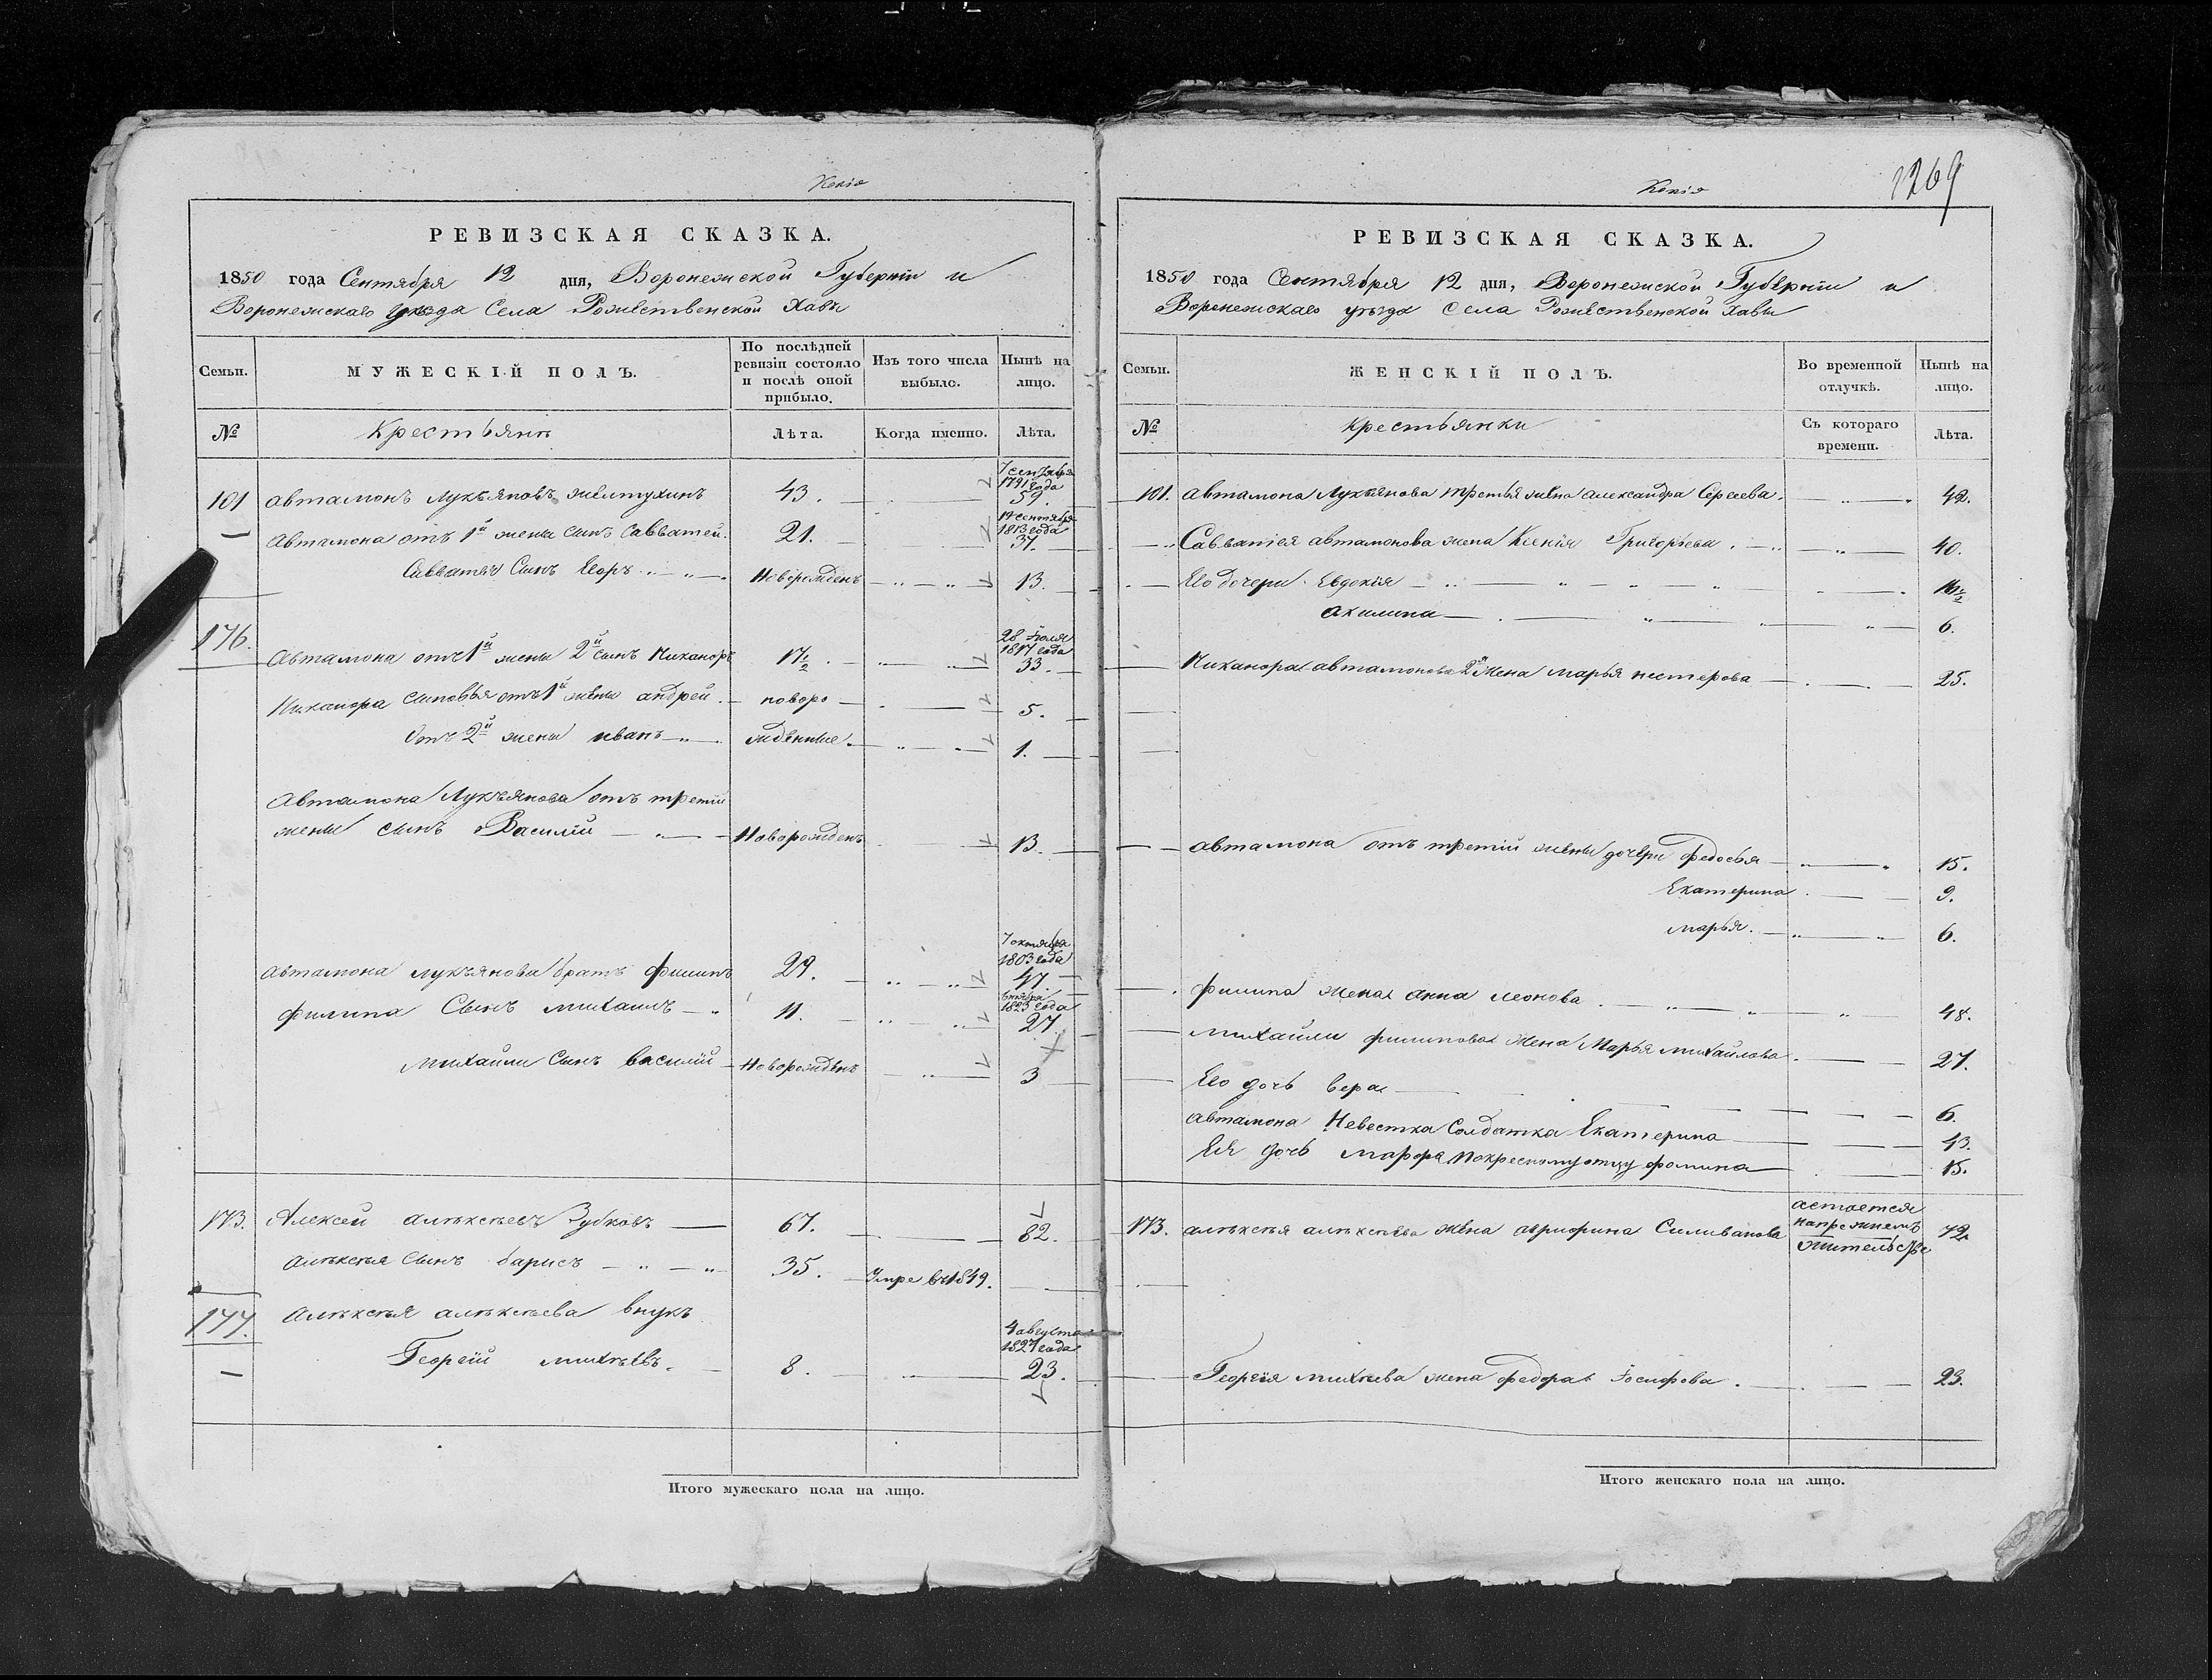 Копія
РЕВИЗСКАЯ СКАЗКА.
1850 года Сентября 12 дня, Воронежской Губерніи и
Воронежскаго уѣзда Села Рожественской Хавы
Семьи.
МУЖЕСКІЙ ПОЛЪ.
По послѣдней
ревизіи состояло
и послѣ оной
прибыло.
Изъ того числа
выбыло.
Нынѣ на
лицо.
№
Крестьянъ
Лѣта.
Когда именно.
Лѣта.
7 сентября
1791 года
101 автамонъ лукьяновъ желтухинъ 43. 59.
сентября
1813 года
Автамона отъ 1й жены сынъ Савватей. 21. 37.
Савватея Сынъ Егоръ Новорожденъ 13.
176.
28 Іюля
1817 года
Автамона отъ 1й жены 2й сынъ Никаноръ 17½. 33.
Никанора сыновья отъ 1й жены андрей новоро 5.
Отъ 2й жены иванъ жденные 1.
Автамона Лукьянова отъ третіи
жены сынъ Василій Новорожденъ 13.
7 октября
1803 года
автамона лукьянова братъ филипъ 29. 47.
ноября
1823 года
филипа Сынъ михаилъ 11. 27.
михаилы сынъ василій Новорожденъ 3
173. Алексей алѣксѣевъ Зубковъ 67. 82.
алѣксѣя сынъ барисъ 35. Умре въ 1849.
177.
алѣксѣя алѣксѣева внукъ
4 августа
1827 года
Георгій михѣевъ. 8. 23.
Итого мужескаго пола на лицо.
Копія
1269
РЕВИЗСКАЯ СКАЗКА.
1850 года Сентября 12 дня, Воронежской Губѣрніи и
Воронежскаго уѣзда Села Рожественской Хавы
Семьи.
ЖЕНСКІЙ ПОЛЪ.
Во временной
отлучкѣ.
Нынѣ на
лицо.
№
крестьянки
Съ котораго
времени.
Лѣта.
101. Автамона Лукьянова третья жена александра Сергеева. 42.
Савватіея автамонова жена Ксенія Григорьева. 40.
Его дочери Евдокія
акилина 6.
Никанора автамонова 2я жена марья нестерова 25.
автамона отъ третіи жены дочери федосья 15.
Екатерина 9.
марья. 6.
филипа жена анна леонова 48.
михаилы филипова жена Марья михаилова. 27.
Его дочь вера 6.
автамона Невестка Солдатка Екатерина 43.
Ея дочь марфа покресному отцу фомина 15.
173. алѣксѣя алѣксѣева жена агрифина Силиванова
астается
напрежнемъ
жительсвѣ
72.
Георгія михѣева жена федора Іосифова. 23.
Итого женскаго пола на лицо.